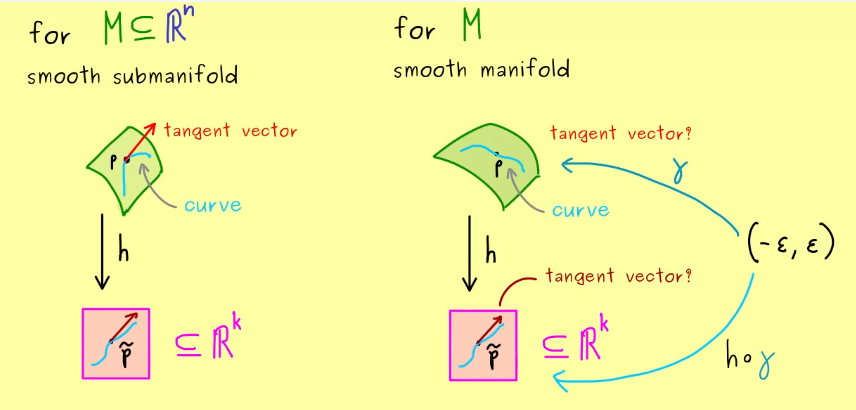 for M ⊆ ℝⁿ
smooth submanifold
tangent vector
p
curve
h
p̃
⊆ ℝᵏ
for M
smooth manifold
tangent vector?
p
γ
curve
(-ε, ε)
h
tangent vector?
p̃
⊆ ℝᵏ
h∘γ